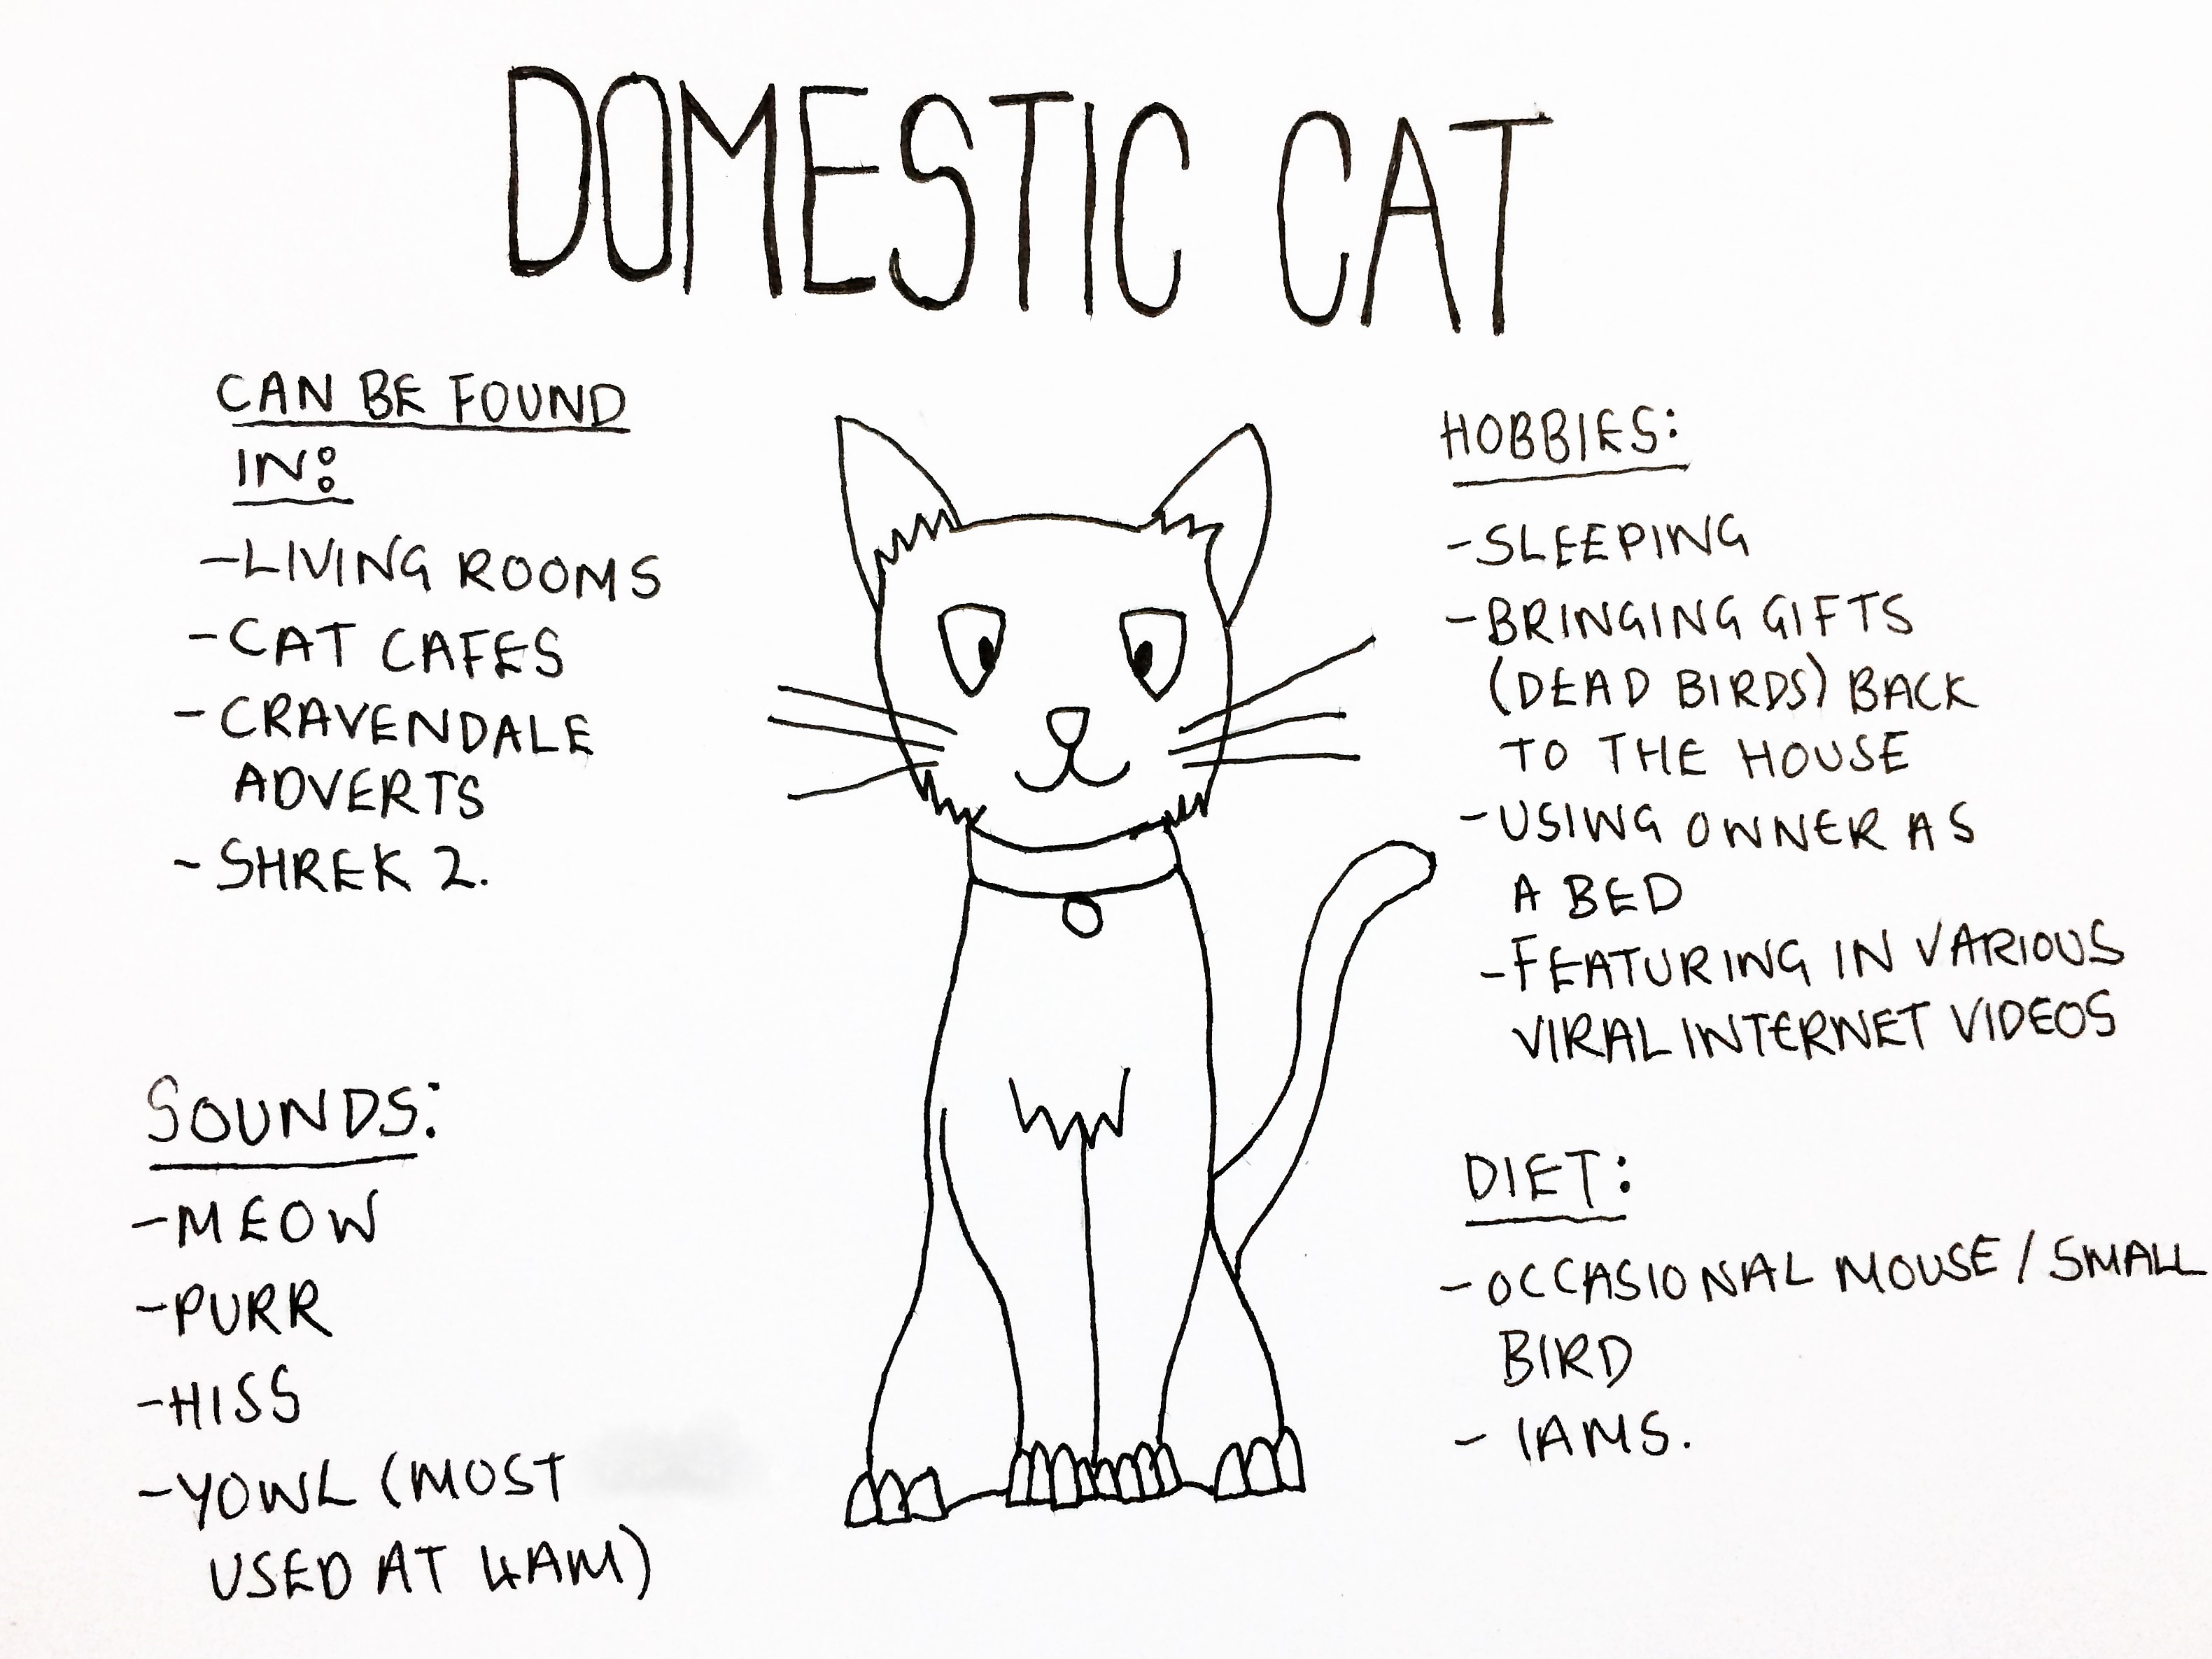 DOMESTIC CAT
CAN BE FOUND
IN:
-LIVING ROOMS
-CAT CAFES
-CRAVENDALE
ADVERTS
-SHREK 2.
SOUNDS:
-MEOW
-PURR
-HISS
-YOWL (MOST
USED AT 4AM)
HOBBIES:
-SLEEPING
-BRINGING GIFTS
(DEAD BIRDS) BACK
TO THE HOUSE
-USING OWNER AS
A BED
-FEATURING IN VARIOUS
VIRAL INTERNET VIDEOS
DIET:
-OCCASIONAL MOUSE / SMALL
BIRD
- IAMS.